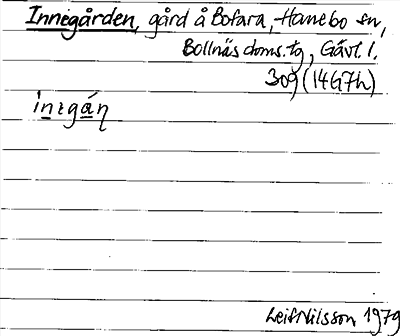 Innegården, gård å Bofara, Hanebo sn,
Bollnäs doms.tg, Gävl. l.
309 (14G7h)
inegáṇ
Leif Nilsson 1979